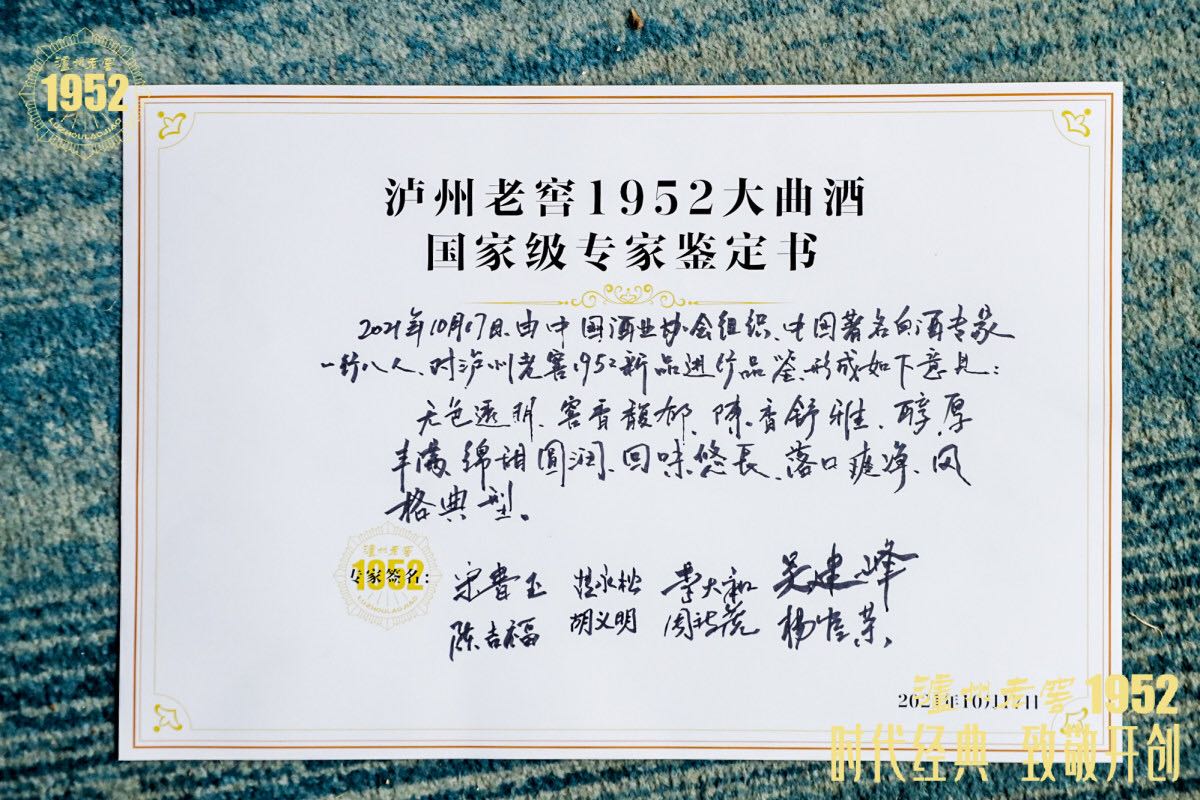 泸州老窖
1952
LUZHOULAOJIAO
泸州老窖1952大曲酒
国家级专家鉴定书
2021年10月17日,由中国酒业协会组织、中国著名白酒专家
一行八人、对泸州老窖1952新品进行品鉴,形成如下意见:
无色透明、窖香馥郁、陈香舒雅、醇厚
丰满、绵甜圆润、回味悠长、落口爽净、风
格典型。
泸州老窖
1952
LUZHOULAOJIAO
专家签名:
宋书玉 李大和 吴建峰
陈吉福 胡义明
2021年10月17日
泸州老窖 1952
时代经典 致敬开创